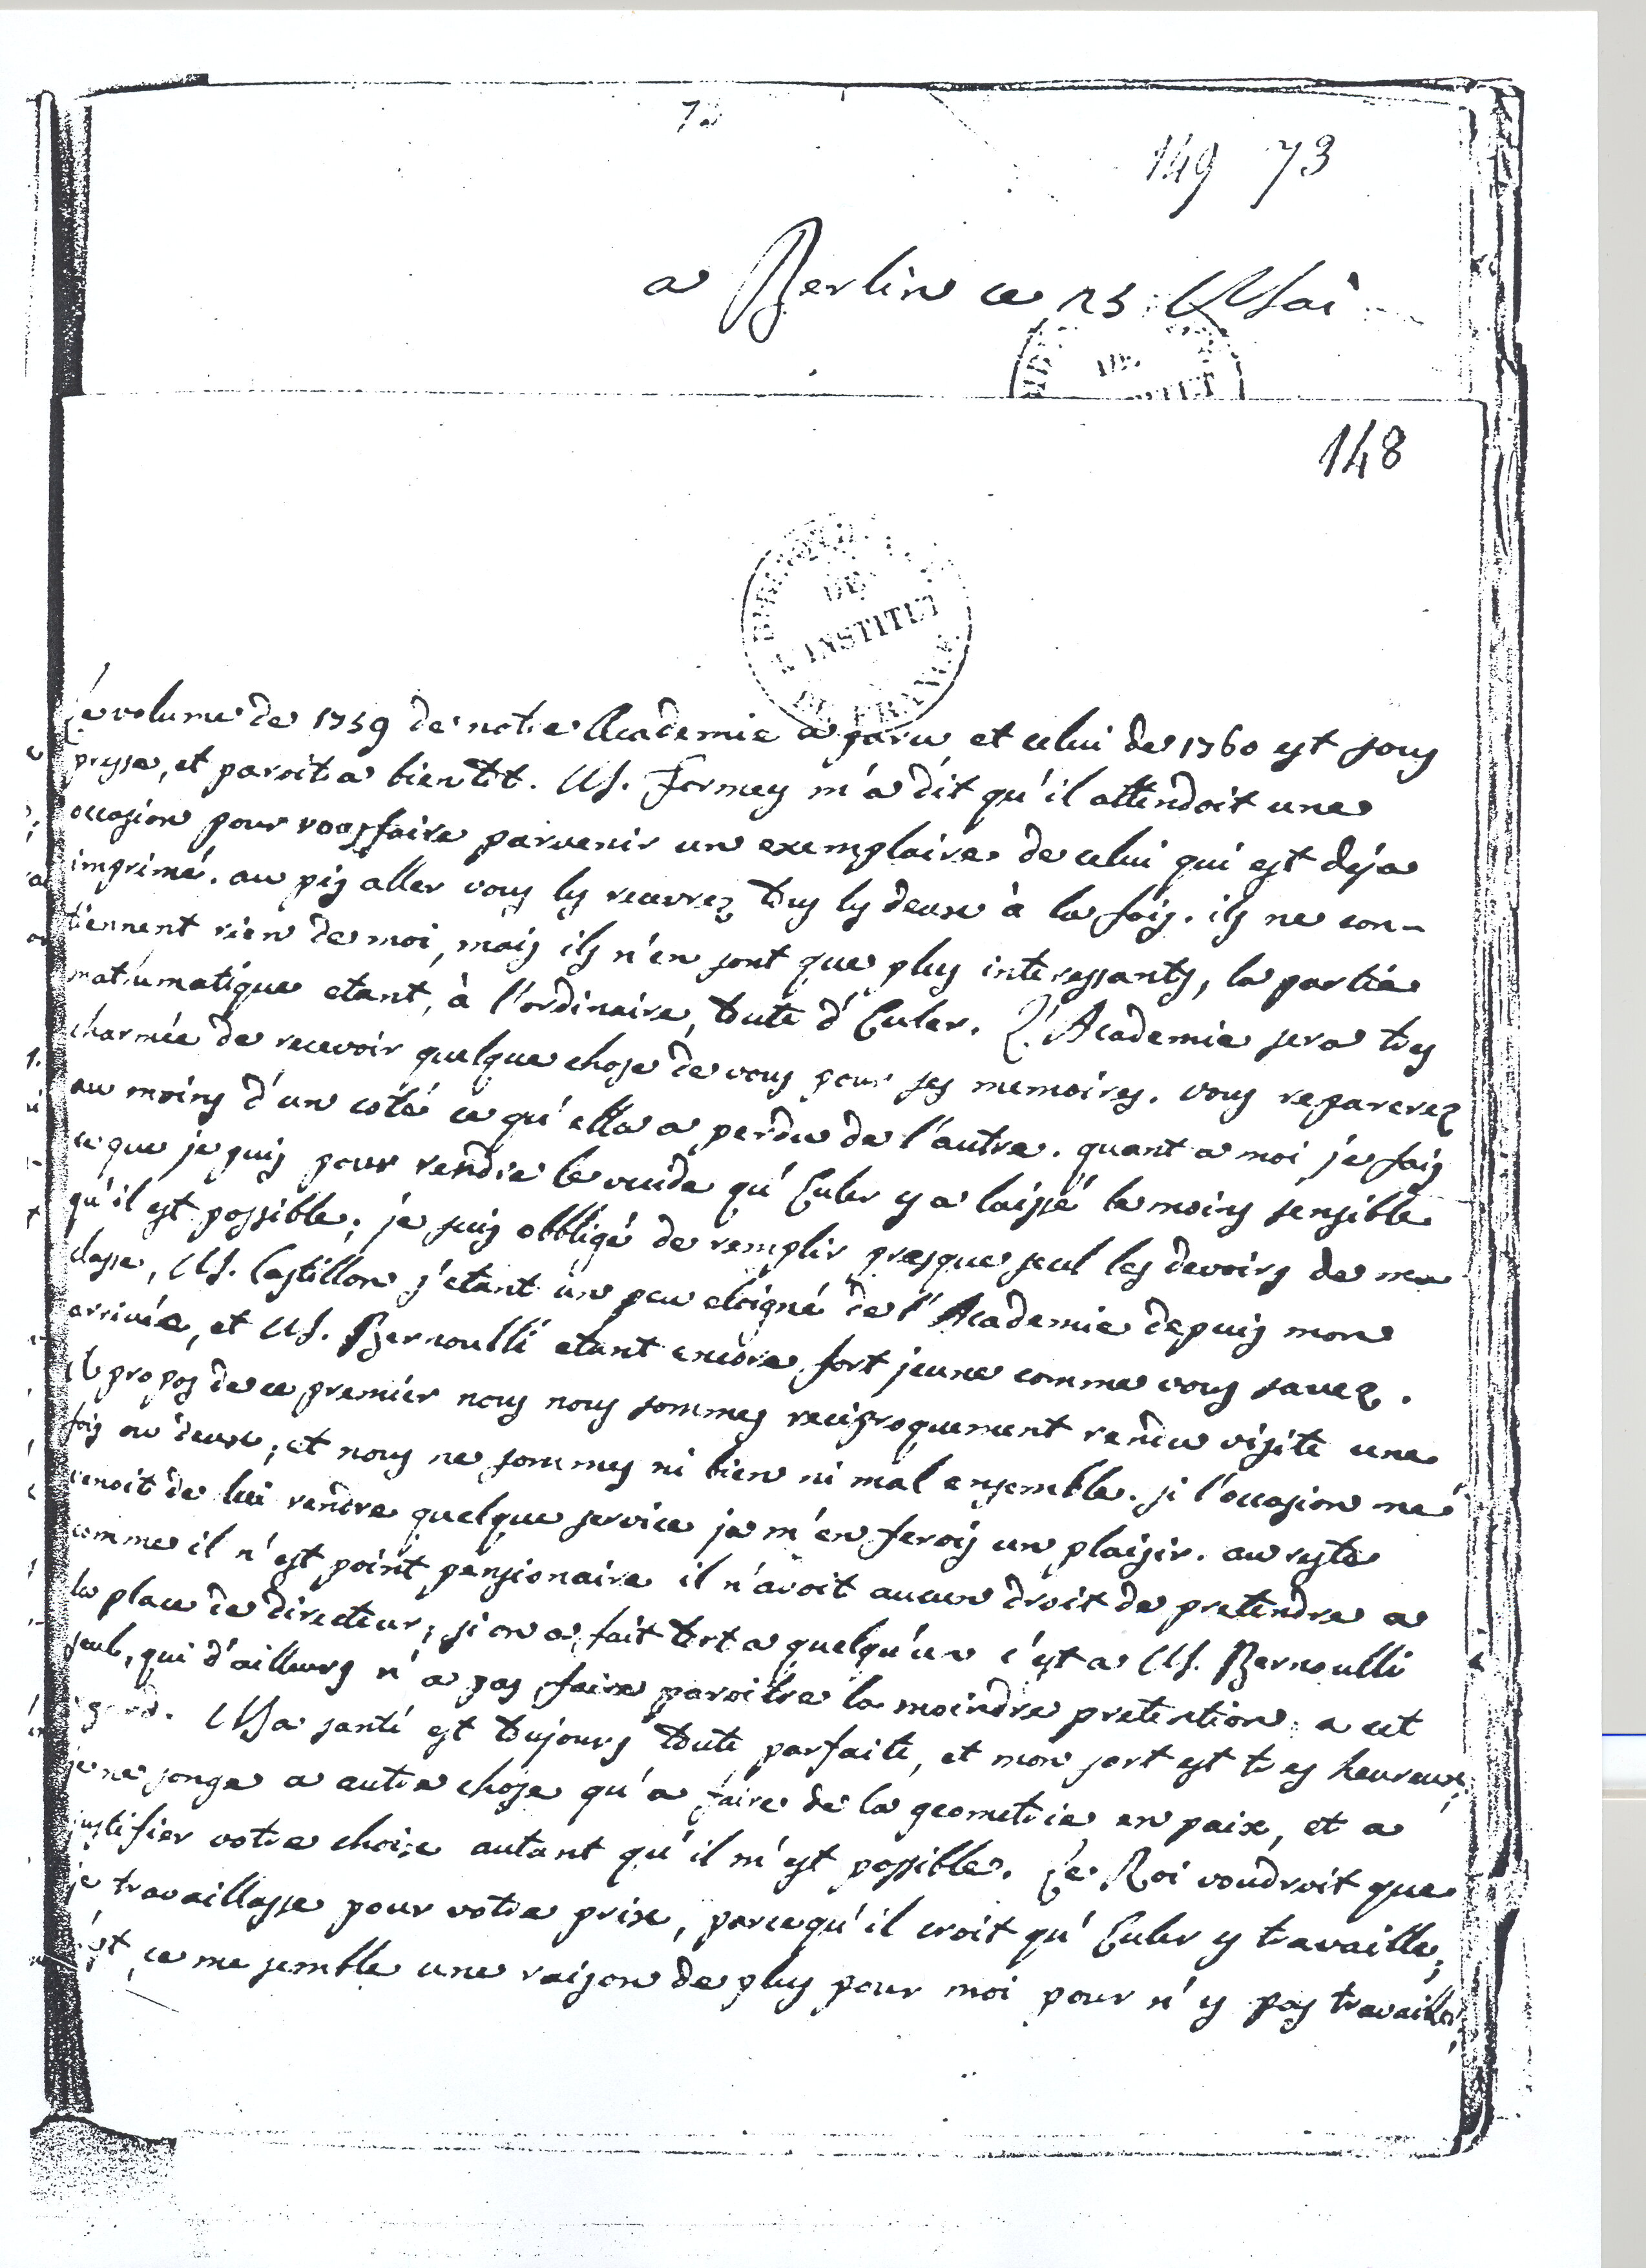 72
149 73
a Berlin ce 23 Mai
DE
148
BIBLIOTH
DE
L'INSTITUT
DE FRANCE
Le volume de 1759 de notre Academie a paru et celui de 1760 est sous
presse, et paroitra bientot. M. Formey m'a dit qu'il attendoit une
occasion pour vous faire parvenir un exemplaire de celui qui est deja
imprimé. au pis aller vous les recevrez tous les deux à la fois. ils ne con-
tiennent rien de moi, mais ils n'en sont que plus interessants, la partie
mathematique etant, à l'ordinaire, toute d'Euler. L'Academie sera tres
charmée de recevoir quelque chose de vous pour ses memoires. vous reparerez
au moins d'un coté ce qu'elle a perdu de l'autre. quant a moi je fais
ce que je puis pour rendre le vuide qu'Euler y a laissé le moins sensible
qu'il est possible; je suis obbligé de remplir presque seul les devoirs de ma
classe, M. Castillon s'etant un peu eloigné de l'Academie depuis mon
arrivée, et M. Bernoulli etant encore fort jeune comme vous savez.
A propos de ce premier nous nous sommes reciproquement rendu visite une
fois ou deux, et nous ne sommes ni bien ni mal ensemble. si l'occasion me
venoit de lui rendre quelque service je m'en ferois un plaisir. au reste
comme il n'est point pensionaire il n'avoit aucun droit de pretendre a
la place de directeur; si on a fait tort a quelqu'un c'est a M. Bernoulli
seul, qui d'ailleurs n'a pas faire paroitre la moindre pretention a cet
egard. Ma santé est toujours toute parfaite, et mon sort est tres heureux;
je ne songe a autre chose qu'a faire de la geometrie en paix, et a
justifier votre choix autant qu'il m'est possible. Le Roi voudroit que
je travaillasse pour votre prix, parcequ'il croit qu'Euler y travaille;
c'est, ce me semble une raison de plus pour moi pour n'y pas travailler,